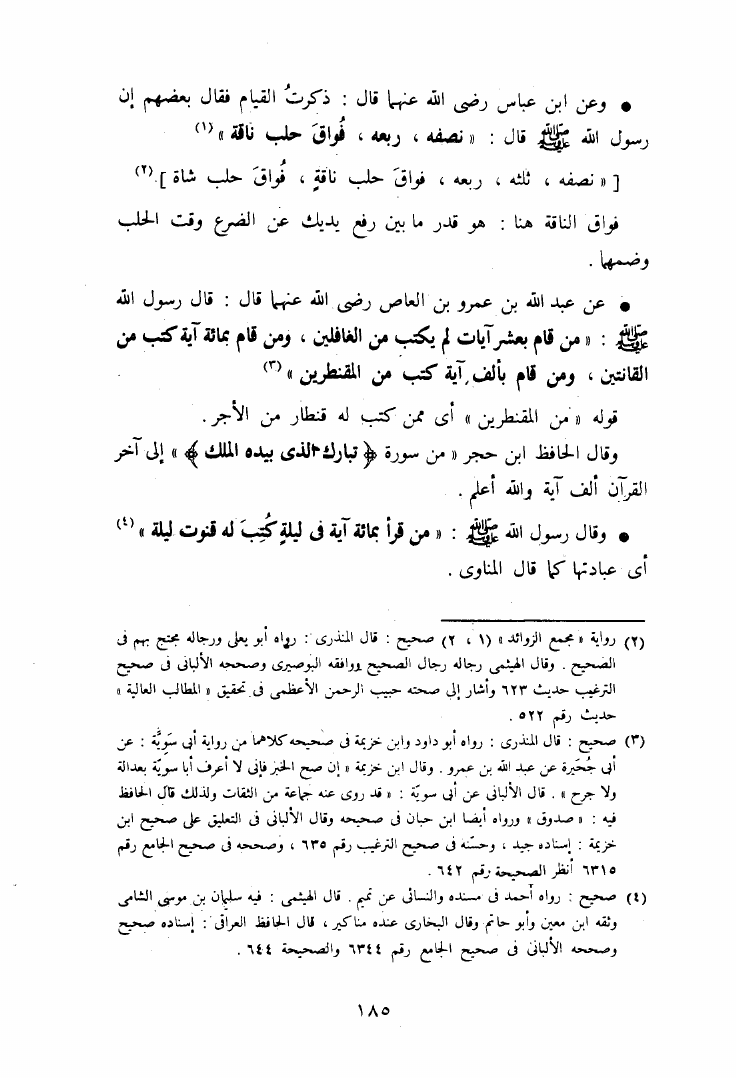 • وعن ابن عباس رضى الله عنهما قال : ذكرتُ القيام فقال بعضهم إن
رسول الله ﷺ قال : « نصفه ، ربعه ، فُواقَ حلب ناقة » (١)
[ « نصفه ، ثلثه ، ربعه ، فواقَ حلب ناقةٍ ، فُواقَ حلب شاة ]. (٢)
فواق الناقة هنا : هو قدر ما بين رفع يديك عن الضرع وقت الحلب
وضمهما .
• عن عبد الله بن عمرو بن العاص رضى الله عنهما قال : قال رسول الله
ﷺ : « من قام بعشر آيات لم يكتب من الغافلين ، ومن قام بمائة آية كتب من
القانتين ، ومن قام بألف آية كتب من المقنطرين » (٣)
قوله « من المقنطرين » أى ممن كتب له قنطار من الأجر .
وقال الحافظ ابن حجر « من سورة ﴿ تبارك الذى بيده الملك ﴾ » إلى آخر
القرآن ألف آية والله أعلم .
• وقال رسول الله ﷺ : « من قرأ بمائة آية فى ليلةٍ كُتِبَ له قنوت ليلة » (٤)
أى عبادتها كما قال المناوى .
(٢) رواية « مجمع الزوائد » (١ ، ٢) صحيح : قال المنذرى : رواه أبو يعلى ورجاله محتج بهم فى
الصحيح . وقال الهيثمى رجاله رجال الصحيح ووافقه البوصيرى وصححه الألبانى فى صحيح
الترغيب حديث ٦٢٣ وأشار إلى صحته حبيب الرحمن الأعظمى فى تحقيق « المطالب العالية »
حديث رقم ٥٢٢ .
(٣) صحيح : قال المنذرى : رواه أبو داود وابن خزيمة فى صحيحه كلاهما من رواية أبى سَوِيَّة : عن
أبى حُجَيرة عن عبد الله بن عمرو . وقال ابن خزيمة « إن صح الخبر فإنى لا أعرف أبا سويّة بعدالة
ولا جرح » . قال الألبانى عن أبى سويّة : « قد روى عنه جماعة من الثقات ولذلك قال الحافظ
فيه : « صدوق » ورواه أيضا ابن حبان فى صحيحه وقال الألبانى فى التعليق على صحيح ابن
خزيمة : إسناده جيد ، وحسّنه فى صحيح الترغيب رقم ٦٣٥ ، وصححه فى صحيح الجامع رقم
٦٣١٥ أنظر الصحيحة رقم ٦٤٢ .
(٤) صحيح : رواه أحمد فى مسنده والنسائى عن تميم . قال الهيثمى : فيه سليمان بن موسى الشامى
وثقه ابن معين وأبو حاتم وقال البخارى عنده مناكير ، قال الحافظ العراقى : إسناده صحيح
وصححه الألبانى فى صحيح الجامع رقم ٦٣٤٤ والصحيحة ٦٤٤ .
١٨٥